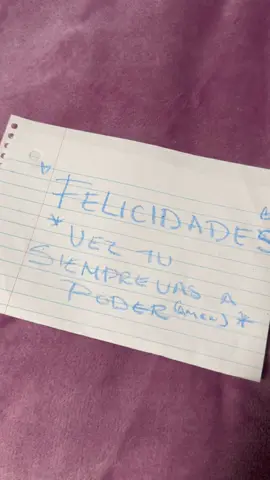 FELICIDADES
* VEZ TU
SIEMPRE VAS A
PODER *